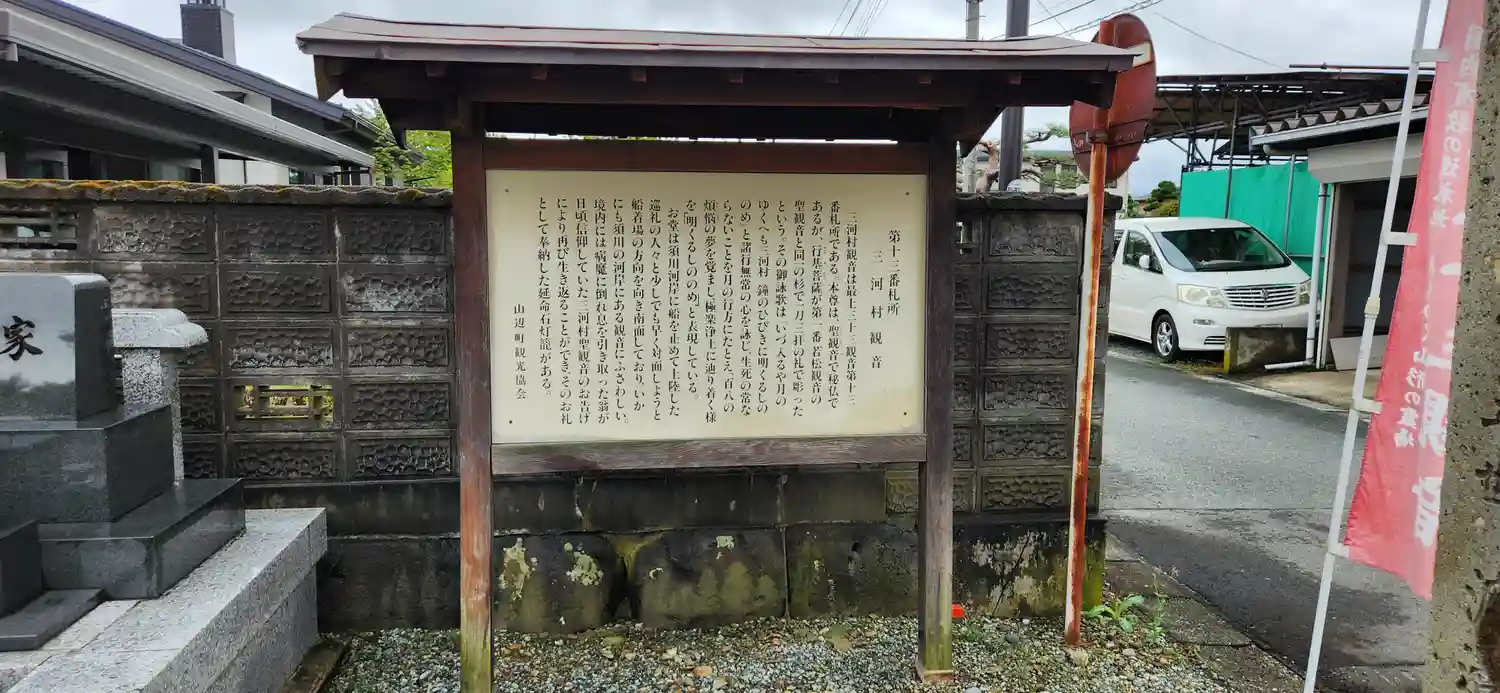 第十三番札所
三河村観音
三河村観音は最上三十三観音第十三
番札所である。本尊は、聖観音で秘仏で
あるが、行基菩薩が第一番若松観音の
聖観音と同一の杉で一刀三拝の礼で彫った
という。その御詠歌は、いづ入るや月の
ゆくへも三河村 鐘のひびきに明くるしの
のめ、と諸行無常の心を詠じ、生死の常な
らないことを月の行方にたとえ、百八の
煩悩の夢を覚まし、極楽浄土に辿り着く様
を「明くるしののめ」と表現している。
お堂は須川の河岸に船を止めて上陸した
巡礼の人々と少しでも早く対面しようと
船着場の方向を向き南面しており、いか
にも須川の河岸にある観音にふさわしい。
境内には病魔に倒れ息を引き取った翁が
日頃信仰していた三河村聖観音のお告げ
により再び生き返ることができ、そのお礼
として奉納した延命石灯籠がある。
山辺町観光協会
家
山形の霊場